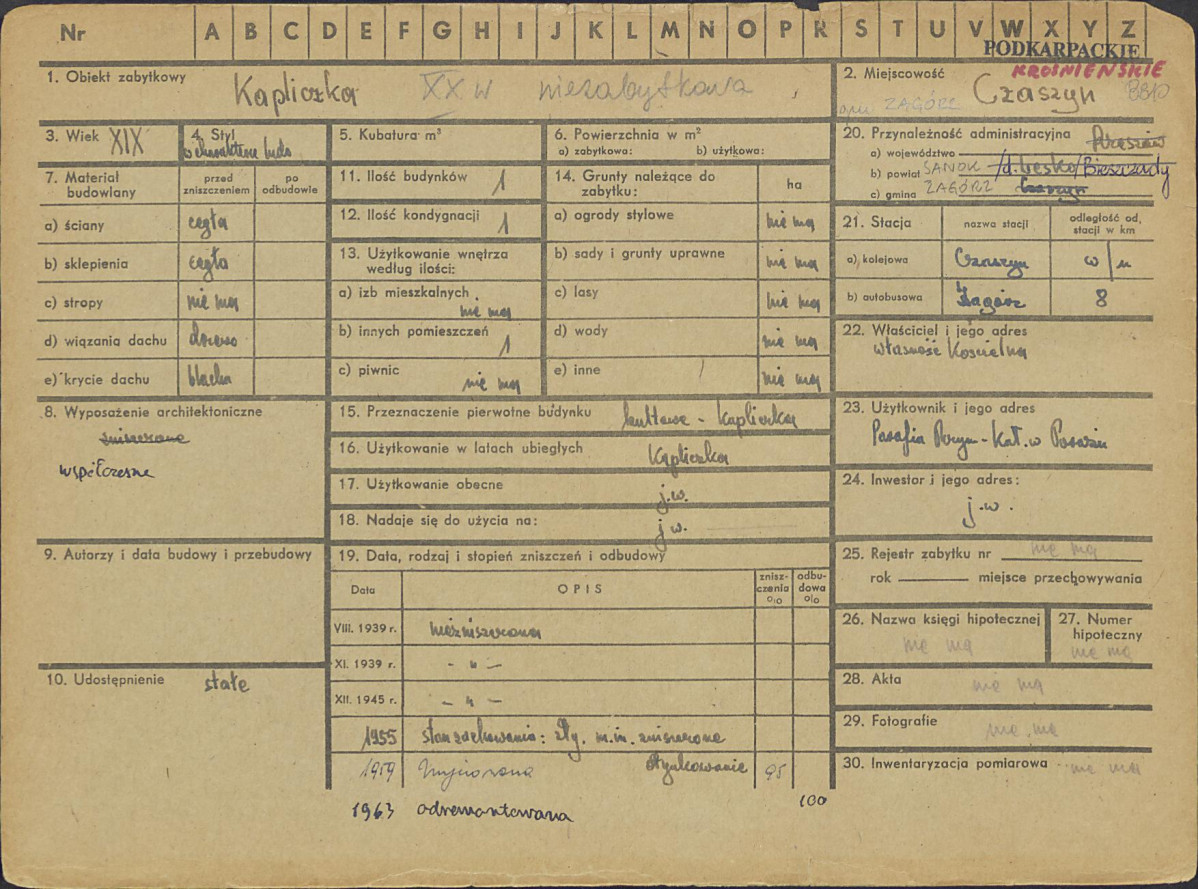 Nr A B C D E F G H I J K L M N O P R S T U V W X Y Z
PODKARPACKIE
KROŚNIEŃSKIE
1. Obiekt zabytkowy Kapliczka XX w niezabytkowa
2. Miejscowość Czaszyn
gm. ZAGÓRZ
3. Wiek XIX
4. Styl
w charakterze lud.
5. Kubatura m³
6. Powierzchnia w m²
a) zabytkowa: b) użytkowa:
7. Materiał budowlany
przed zniszczeniem
po odbudowie
a) ściany cegła
b) sklepienia cegła
c) stropy nie ma
d) wiązania dachu drewno
e) krycie dachu blacha
8. Wyposażenie architektoniczne
zniszczone
współczesne
9. Autorzy i data budowy i przebudowy
10. Udostępnienie stałe
11. Ilość budynków 1
12. Ilość kondygnacji 1
13. Użytkowanie wnętrza
według ilości:
a) izb mieszkalnych nie ma
b) innych pomieszczeń 1
c) piwnic nie ma
14. Grunty należące do
zabytku: ha
a) ogrody stylowe nie ma
b) sady i grunty uprawne nie ma
c) lasy nie ma
d) wody nie ma
e) inne nie ma
15. Przeznaczenie pierwotne budynku kultowe - kapliczka
16. Użytkowanie w latach ubiegłych Kapliczka
17. Użytkowanie obecne j.w.
18. Nadaje się do użycia na: j w.
19. Data, rodzaj i stopień zniszczeń i odbudowy
Data OPIS zniszczenia o/o odbudowa o/o
VIII. 1939 r. niezniszczona
XI. 1939 r. - „ -
XII. 1945 r. - „ -
1955 stan zachowania: zły, m.in. zniszczone
otynkowanie
1959 95
1963 odremontowana 100
20. Przynależność administracyjna
a) województwo Rzeszów
b) powiat SANOK /d. Lesko/ Bieszczady
c) gmina ZAGÓRZ Czaszyn
21. Stacja nazwa stacji odległość od. stacji w km
a) kolejowa Czaszyn w/m
b) autobusowa Zagórz 8
22. Właściciel i jego adres
własność Kościelna
23. Użytkownik i jego adres
Parafia Rzym-Kat. w
24. Inwestor i jego adres:
j.w.
25. Rejestr zabytku nr nie ma
rok miejsce przechowywania
26. Nazwa księgi hipotecznej
nie ma
27. Numer hipoteczny
nie ma
28. Akta nie ma
29. Fotografie nie ma
30. Inwentaryzacja pomiarowa nie ma